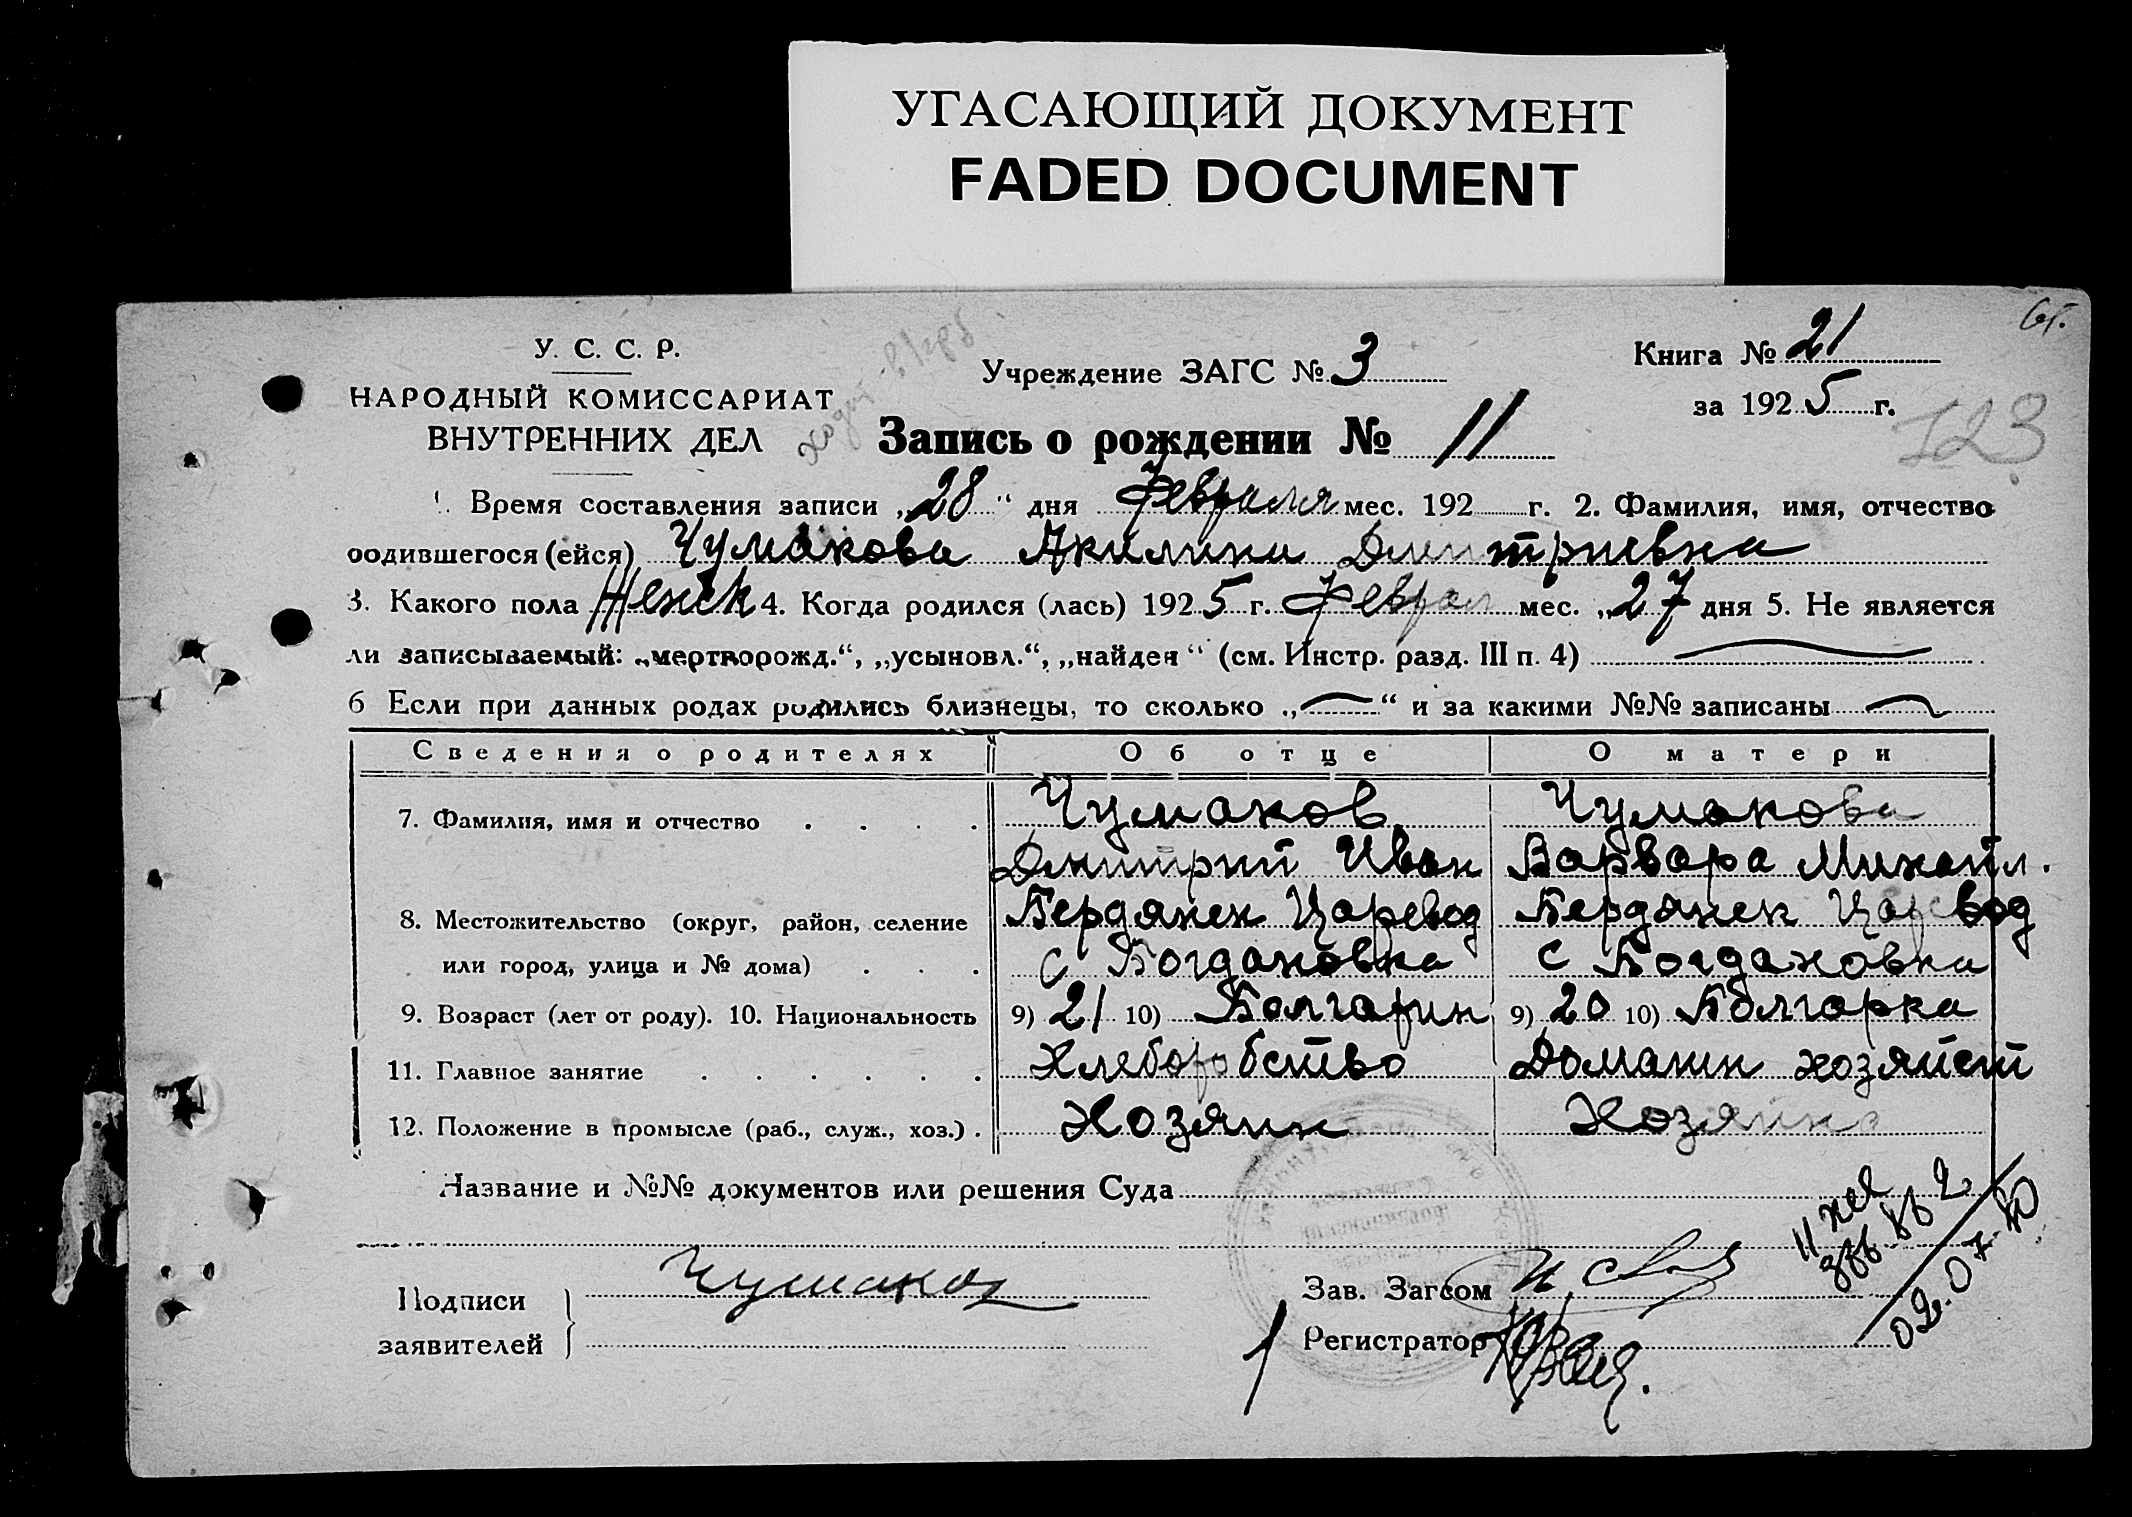 УГАСАЮЩИЙ ДОКУМЕНТ
FADED DOCUMENT
У. С. С. Р.
НАРОДНЫЙ КОМИССАРИАТ
ВНУТРЕННИХ ДЕЛ
Учреждение ЗАГС № 3
Книга № 21
за 1925 г.
123
Запись о рождении № 11
1. Время составления записи „28“ дня Февраля мес. 192 г. 2. Фамилия, имя, отчество
родившегося (ейся) Чумакова Акилина Дмитриевна
3. Какого пола Женск 4. Когда родился (лась) 1925 г. Феврал мес. „27 дня 5. Не является
ли записываемый: „мертворожд.“, „усыновл.“, „найден“ (см. Инстр. разд. III п. 4)
6 Если при данных родах родились близнецы, то сколько „—“ и за какими №№ записаны
Сведения о родителях Об отце О матери
7. Фамилия, имя и отчество . . . . Чумаков Чумакова
Дмитрий Иван Варвара Михайл.
8. Местожительство (округ, район, селение Бердянск Царевод Бердянск Царевод
или город, улица и № дома) . . . с Богдановка с Богдановка
9. Возраст (лет от роду). 10. Национальность 9) 21 10) Болгарин 9) 20 10) Болгарка
11. Главное занятие . . . . . . Хлеборобство Домашн хозяйст
12. Положение в промысле (раб., служ., хоз.) . Хозяин Хозяйка
Название и №№ документов или решения Суда
Подписи
заявителей
Чумаков
Зав. Загсом
Регистратор
02.07.80